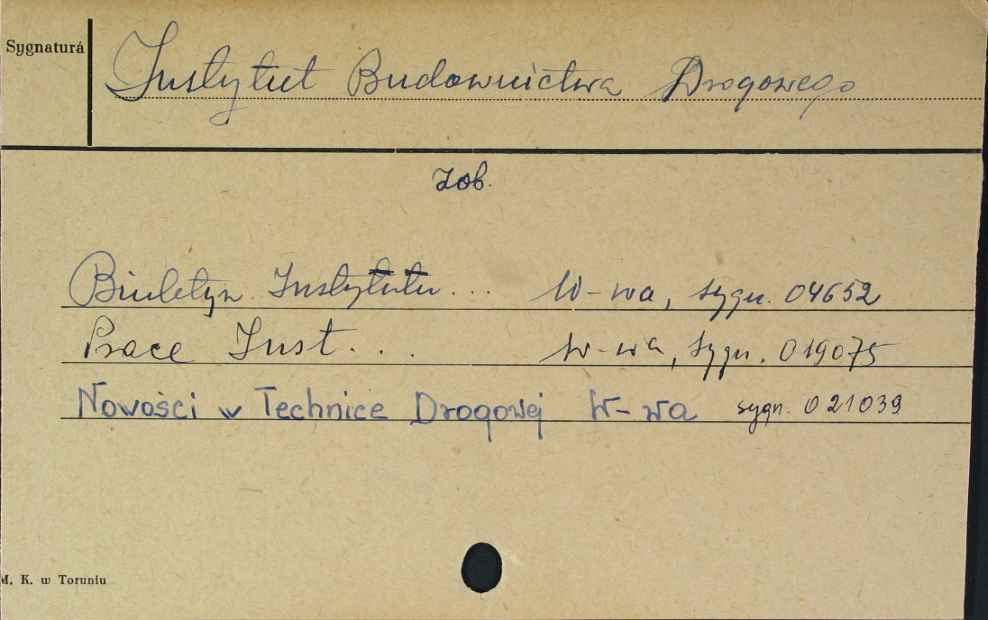 Sygnatura
Instytut Budownictwa Drogowego
zob.
Biuletyn Instytutu... W-wa, sygn. 04652
Prace Inst... W-wa, sygn. 019075
Nowości w Technice Drogowej W-wa sygn. 021039
M. K. w Toruniu